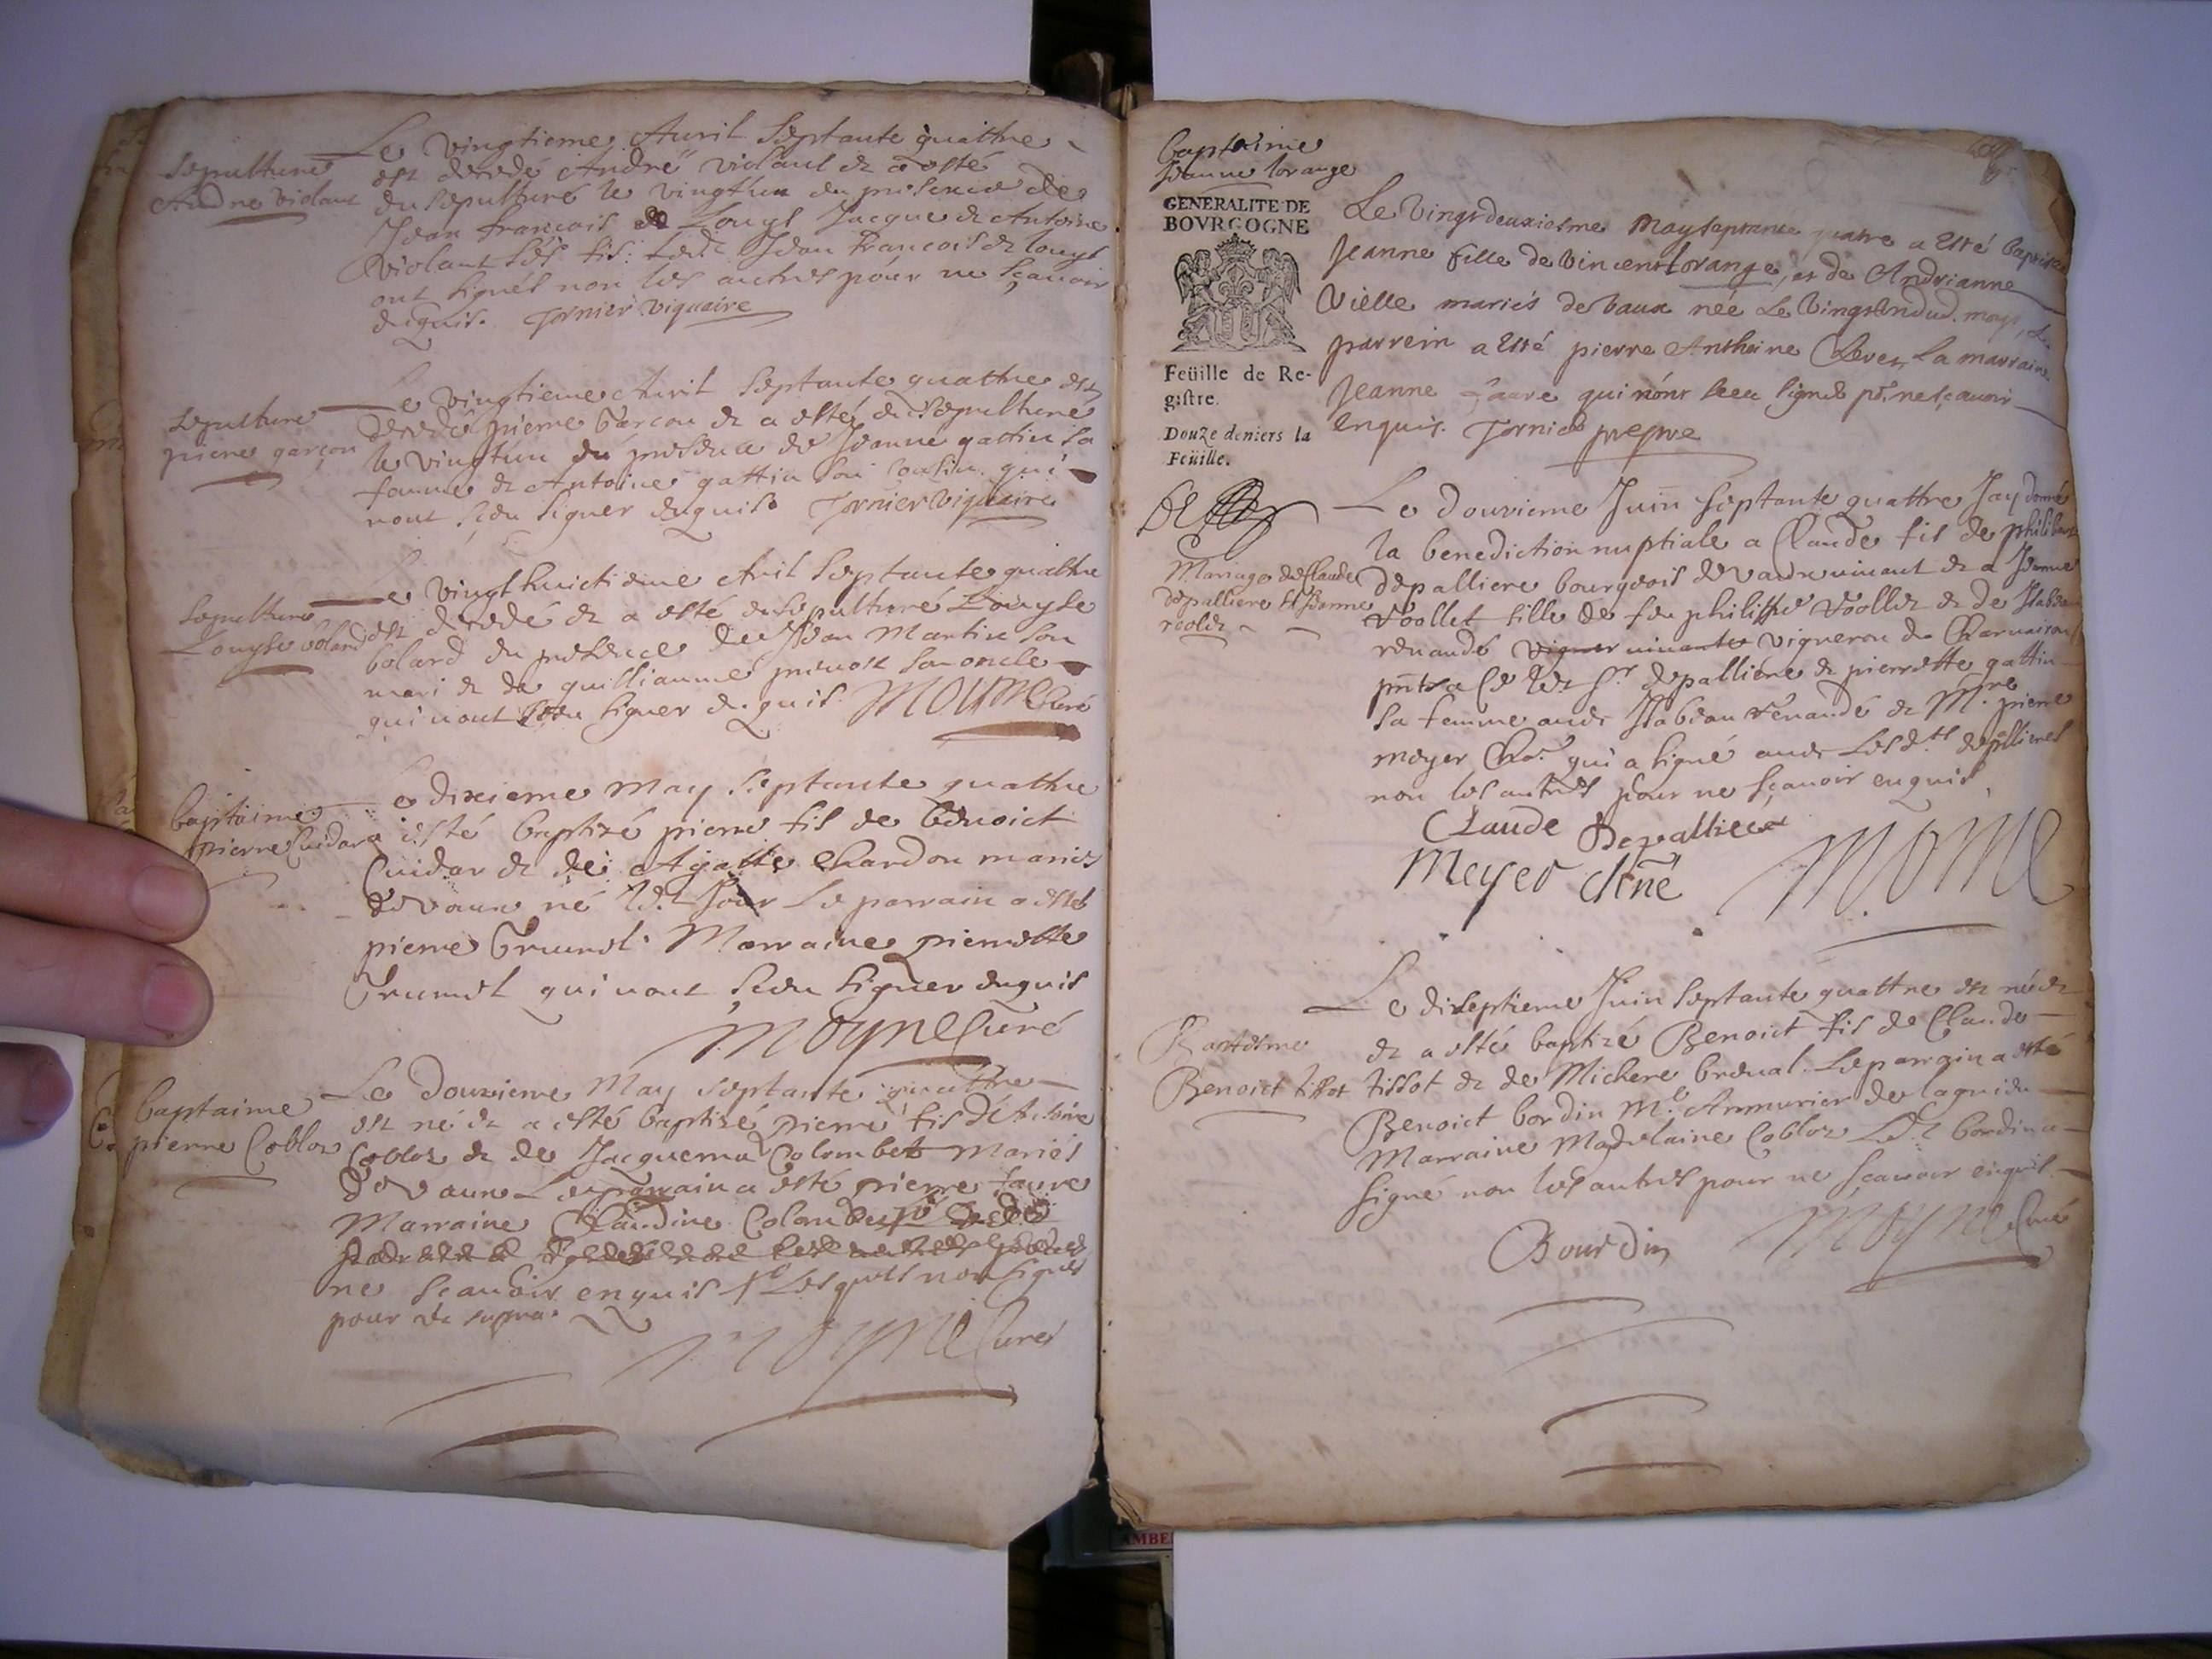 Sepulture
Andre violant
Le vingtieme Auril septante quattre
est decedé André violant et a esté
ensepulturé le vingthun en presence de
Jean francois et Louys Jacque et Antoine
violant ses fis led. Jean francois et louys
ont signés non les autres pour ne sçauoir
enquis. Tornier viquaire
Sepulture
pierre garçon
Le vingtieme Auril septante quattre est
decedé pierre Garcon et a esté ensepulturé
le vingtun en presence de Jeanne gattin sa
famme et Antoine gattin son cousin qui
nont sceu signer enquis Tornier viquaire
Sepulture
Louyse bolard
Le vingthuictieme Auril septante quattre
est decedé et a esté ensepulturé Louyse
bolard en presence de Jean Martin son
mari et de guilliaume preuost son oncle
qui nont sceu signer enquis Moyne Curé
baptaime
pierre Cuidar
Le dixieme May septante quattre
a esté baptizé pierre fis de benoict
Cuidar et de Agatte Chardon mariés
de vaux né led. Jour Le parrain a esté
pierre Marraine pierrette
qui nont sceu signer enquis
Moyne Curé
baptaime
pierre Coblox
Le douzieme May septante quattre
est né et a esté baptizé pierre fis d'Antoine
Coblox et de Jacquema Colombet mariés
de vaux Le parrain a esté pierre faure
Marraine Claudine Colombet
ne scauoir enquis Lesquels non signés
pour de supra
Moyne Curé
baptaime
Jeanne lorange
GENERALITE DE
BOVRGOGNE
Feüille de Re-
gistre.
Douze deniers la
Feüille.
Le Vingtdeuxiesme May septante quatre a Esté baptisée
Jeanne fille de Vincent lorange, et de Andrianne
Vielle mariés de Vaux née Le Vingt un dud. moys, Le
parrein a Esté pierre Anthoine Cleret La marraine
Jeanne faure qui n'ont sceu signé pr. ne sçauoir
enquis. Tornier prestre
Mariage de Claude
depalliere et Jeanne
voollet
Le douzieme Juin septante quattre Jay donné
la benediction nuptiale a Claude fis de philibert
depalliere bourgeois de vaux viuant et a Jeanne
voollet fille de feu philippe voollet et de Isabeau
renaude vigneron de Charnairon
pnts a ce led. Sr. depalliere et pierrette gattin
sa femme aud. Isabeau renaude et Mre. pierre
meyer qui a signé auec Lesd.ts depallieres
non les autres pour ne sçauoir enquis
Claude Depalliere
Meyer
Moyne
Baptesme
Benoict tissot
Le diseptieme Juin septante quattre est né et
et a esté baptizé Benoict fis de Claude
tissot et de Michere breual Le parrain a esté
Benoict bordin M.e Armurier de lagnieu
Marraine Madelaine Coblox Led. bordin a
signé non les autres pour ne scauoir enquis
Bourdin Moyne Curé